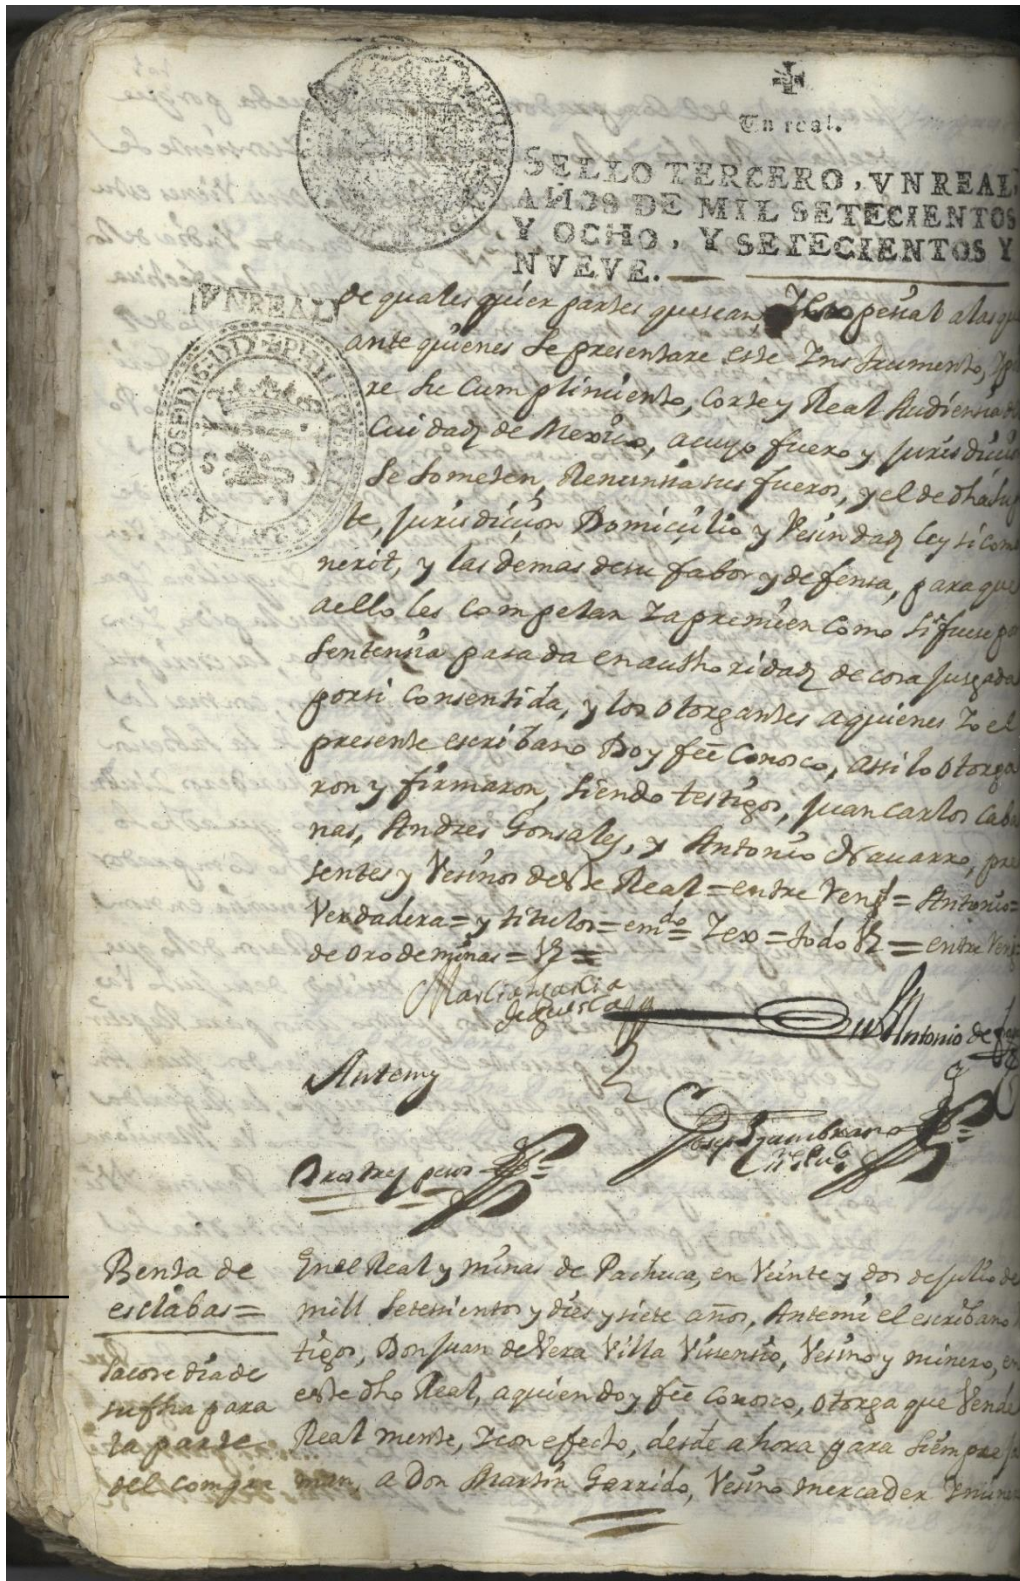 Un real.
SELLO TERCERO, VN REAL,
AÑOS DE MIL SETECIENTOS
Y OCHO, Y SETECIENTOS Y
NVEVE.
VN REAL
de quales quier partes que sean, y en especial a las que
ante quienes se presentare este Instrumento,
re su Cumplimiento, Corte y Real Audiencia de
Cuidad de Mexico, acuyo fuero y Jurisdicio
se someten, Renunsia sus fueros, y el de dha
te, Jurisdicion Domicilio y Vesindad ley si com
nerit, y las demas desu fabor y defensa, para que
aello les Competan Yapremien Como si fuese por
Sentensia pasada en authoridad de cosa Jusgada
porsi Consentida, y los otorgantes aquienes Yo el
presente escribano Doy feê Conosco, assi lo otorga
ron y firmaron, siendo testigos, Juan Carlos Caba
nas, Andres Gonsales, y Antonio Nauarro, pre
sentes y Vesinos deste Real = entre Reng = Antonio =
Verdadera = y titulos = emdo = = todo Vz = entre Reng
de Oro de minas = Vz =
Garcia
Antonio de
Antemy
Joseph Zambrano
Dros tres pesos
Benta de
esclabas =
sacose dia de
su fha para
la parte
del compra
En el Real y minas de Pachuca, en Veinte y dos de Julio de
mill Setessientos y dies y siete años, Antemi el escribano
tigos, Don Juan de Vera Villa Visensio, Vesino y minero, en
este dho Real, aquien doy feê Conosco, otorga que Vende
Real mente, Y con efecto, desde ahora para siempre
mas, a Don Martin Garrido, Vesino mercader Y mine